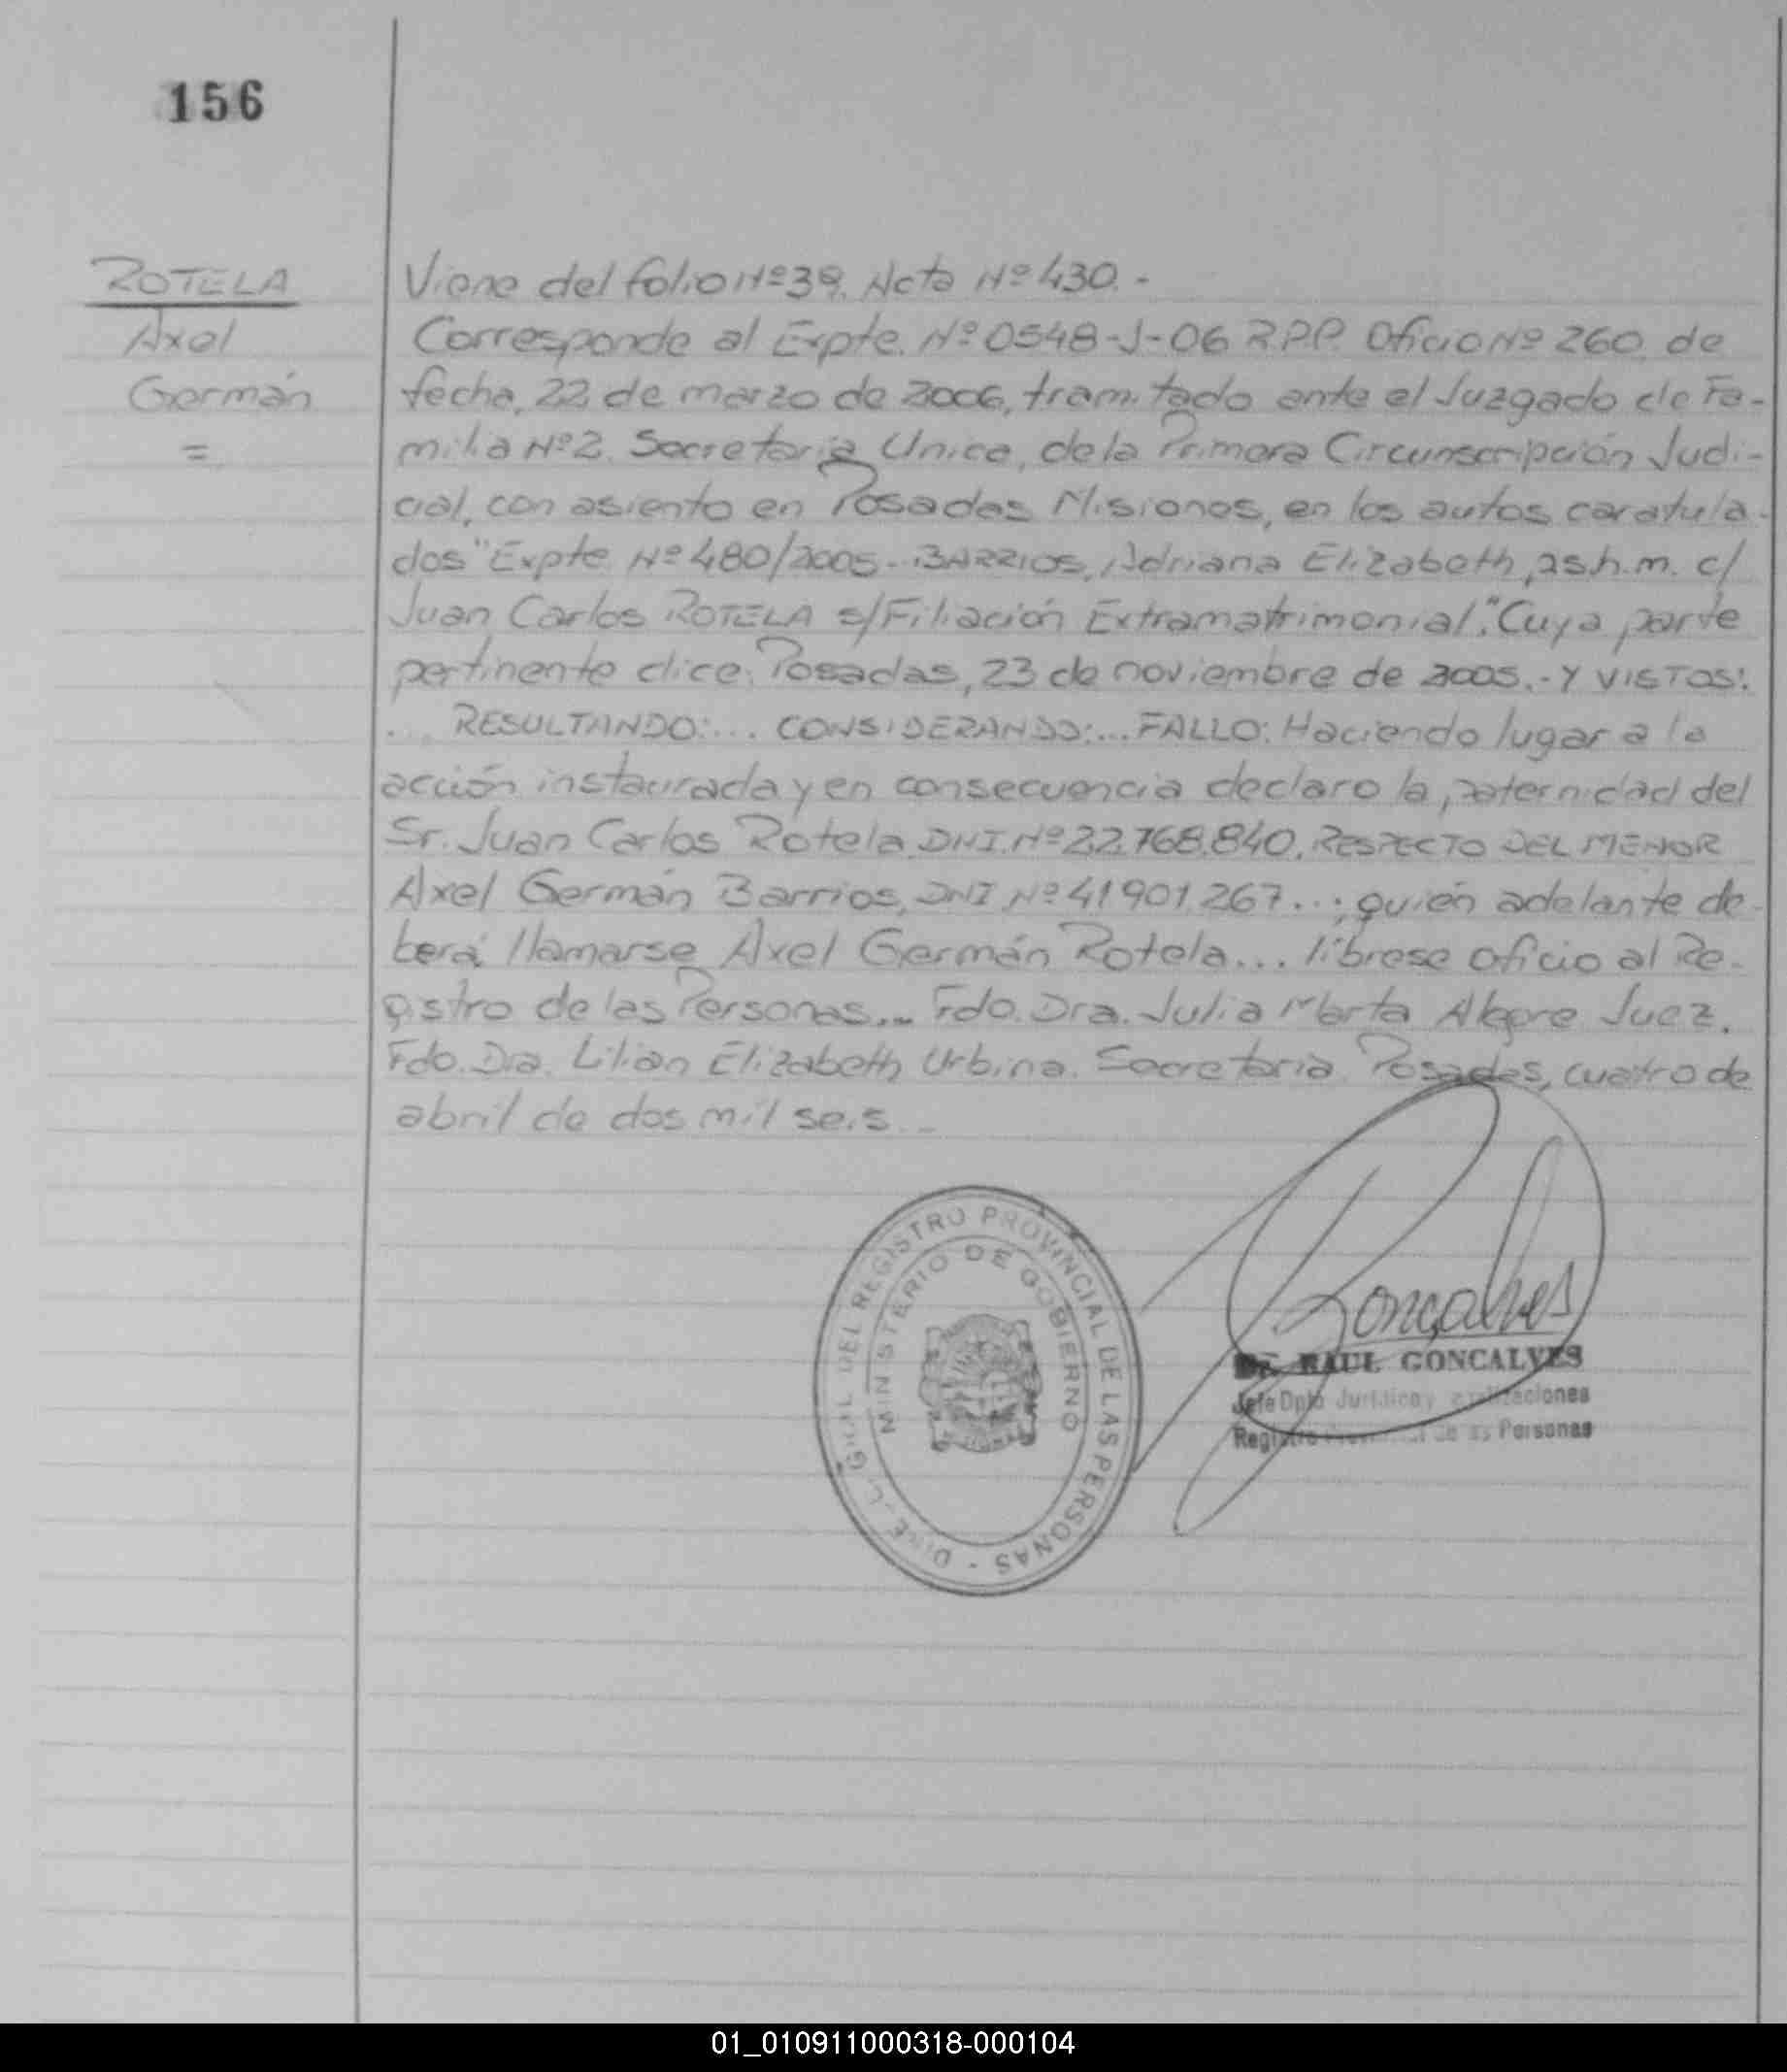 156
ROTELA
Axel
Germán
=
Viene del folio Nº 39. Acta Nº 430.-
Corresponde al Expte. Nº 0548-J-06 R.P.P. Oficio Nº 260, de
fecha, 22 de marzo de 2006, tramitado ante el Juzgado de Fa-
milia Nº 2. Secretaría Unica, de la Primera Circunscripción Judi-
cial, con asiento en Posadas Misiones, en los autos caratula-
dos "Expte Nº 480/2005.- BARRIOS, Adriana Elizabeth, p.s.h.m. c/
Juan Carlos ROTELA s/Filiación Extramatrimonial". Cuya parte
pertinente dice: Posadas, 23 de noviembre de 2005.- Y VISTOS:
... RESULTANDO:... CONSIDERANDO:... FALLO: Haciendo lugar a la
acción instaurada y en consecuencia declaro la paternidad del
Sr. Juan Carlos Rotela DNI. Nº 22.768.840, RESPECTO DEL MENOR
Axel Germán Barrios, DNI Nº 41.901.267...; quién adelante de-
berá llamarse Axel Germán Rotela... líbrese oficio al Re-
gistro de las Personas... Fdo. Dra. Julia Marta Alegre Juez.
Fdo. Dra. Lilian Elizabeth Urbina. Secretaria. Posadas, cuatro de
abril de dos mil seis.-
GRAL DEL REGISTRO PROVINCIAL DE LAS PERSONAS -
MINISTERIO DE GOBIERNO
Goncalves
Dr. RAUL GONCALVES
Jefe Dpto Jurídico y
Registro Provincial de las Personas
01_010911000318-000104